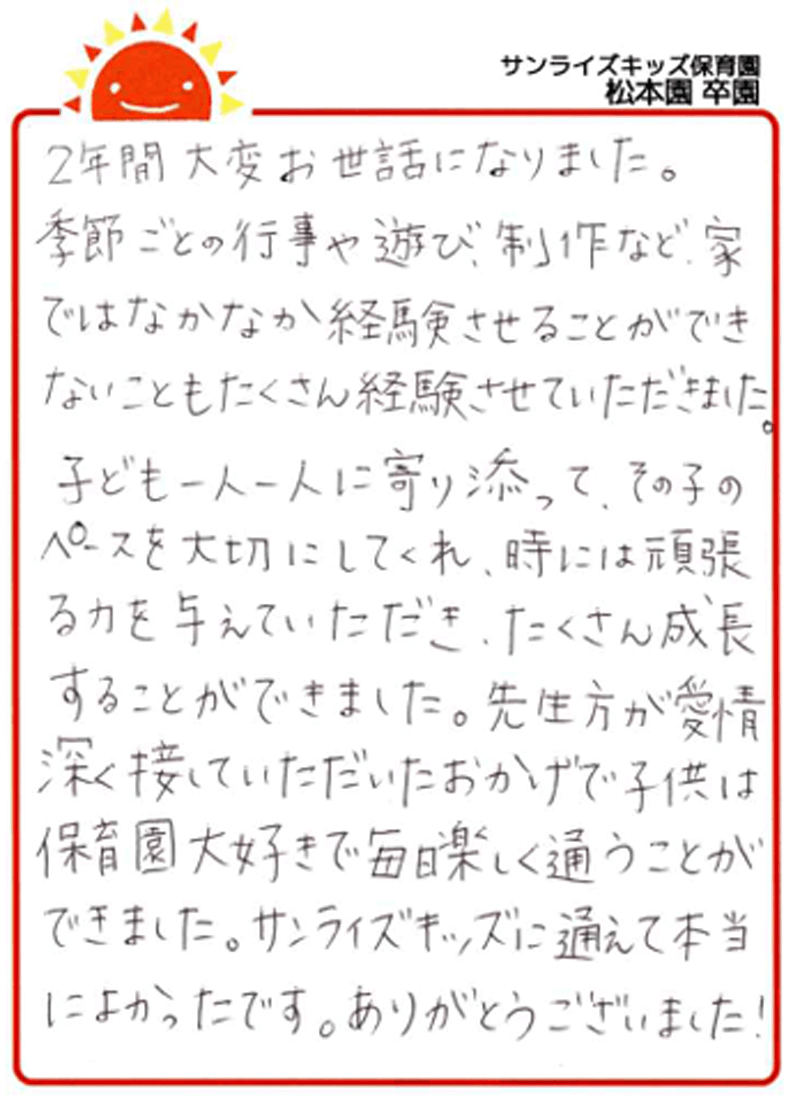 サンライズキッズ保育園
松本園 卒園
2年間 大変お世話になりました。
季節ごとの行事や遊び、制作など、家
ではなかなか経験させることができ
ないこともたくさん経験させていただきました。
子ども一人一人に寄り添って、その子の
ペースを大切にしてくれ、時には頑張
る力を与えていただき、たくさん成長
することができました。先生方が愛情
深く接していただいたおかげで子供は
保育園大好きで毎日楽しく通うことが
できました。サンライズキッズに通えて本当
によかったです。ありがとうございました!